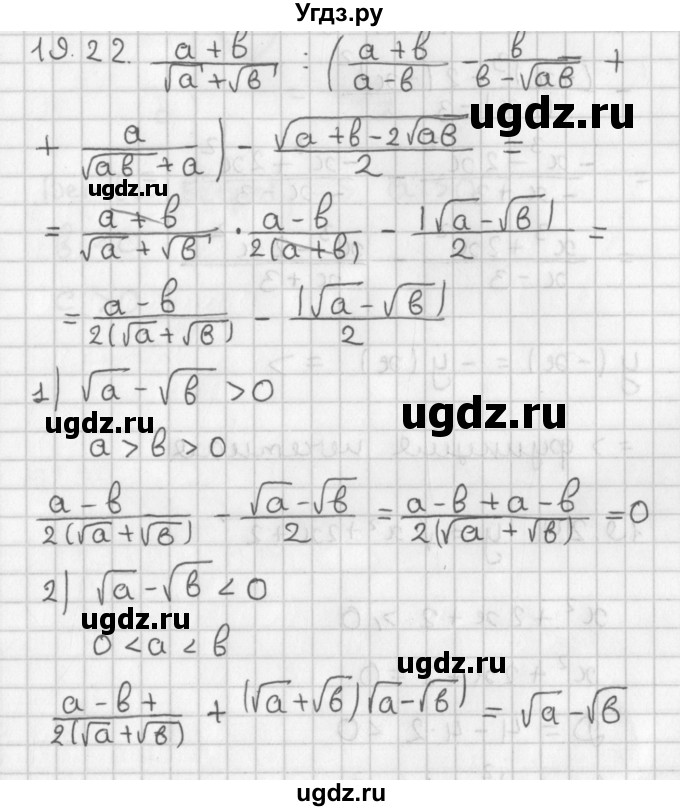 Угдз.ру
19.22. (a+b)/(√a+√b) : ((a+b)/(a-b) - b/(b-√ab) +
+ a/(√ab+a)) - √(a+b-2√ab)/2 =
ugdz.ru
ugdz.ru
= (a+b)/(√a+√b) · (a-b)/(2(a+b)) - |√a-√b|/2 =
= (a-b)/(2(√a+√b)) - |√a-√b|/2
1) √a-√b>0
ugdz.ru
ugdz.ru
a>b>0
(a-b)/(2(√a+√b)) - (√a-√b)/2 = (a-b+a-b)/(2(√a+√b)) = 0
2) √a-√b<0
ugdz.ru
0<a<b
ugdz.ru
(a-b+)/(2(√a+√b)) + (√a+√b)(√a-√b) = √a-√b
ugdz.ru
ugdz.ru